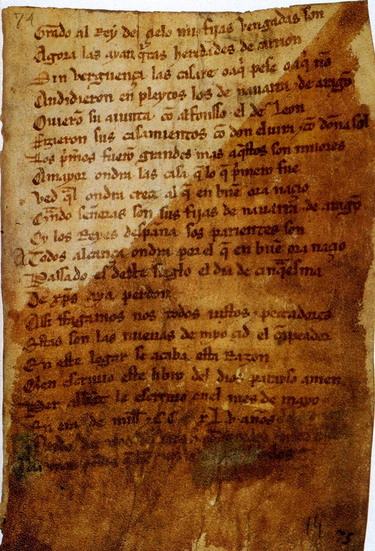 74
Grado al Rey del çielo mis fijas vengadas son
Agora las ayan q̃tas heredades de carrion
Sin verguença las casare o aq̃ pese o aq̃ nõ
Andidieron en pleytos los de nauarra ⁊ de aragõ
Ouieron su aiunta cõ alfonsso el de Leon
Fizieron sus casamientos cõ don eluira ⁊ cõ doña sol
Los p̃meros fuerõ grandes mas aq̃stos son miiores
A mayor ondra las casa q̃ lo q̃ p̃mero fue
Ved q̃l ondra creçe al q̃ en buẽ ora naçio
Q̃ndo señoras son sus fijas de nauarra ⁊ de aragõ
Oy los Reyes despaña sos parientes son
A Todos alcança ondra por el q̃ en buẽ ora naçio
Passado es deste sieglo el dia de cinq̃esma
De xp̃s aya perdon
Assi ffagamos nos todos iustos ⁊ peccadores
Estas son las nueuas de myo çid el cãpeador
En este logar se acaba esta Razon
Quien escriuio este libro del dios parayso amen
Per abbat le escriuio en el mes de mayo
En era de mill ⁊ .CC XL.v. años
75